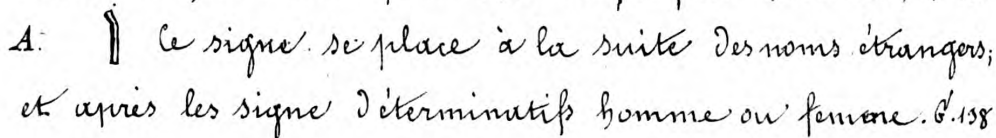 A. Ce signe se place à la suite des noms étrangers;
et après les signe déterminatifs homme ou femme. G. 138